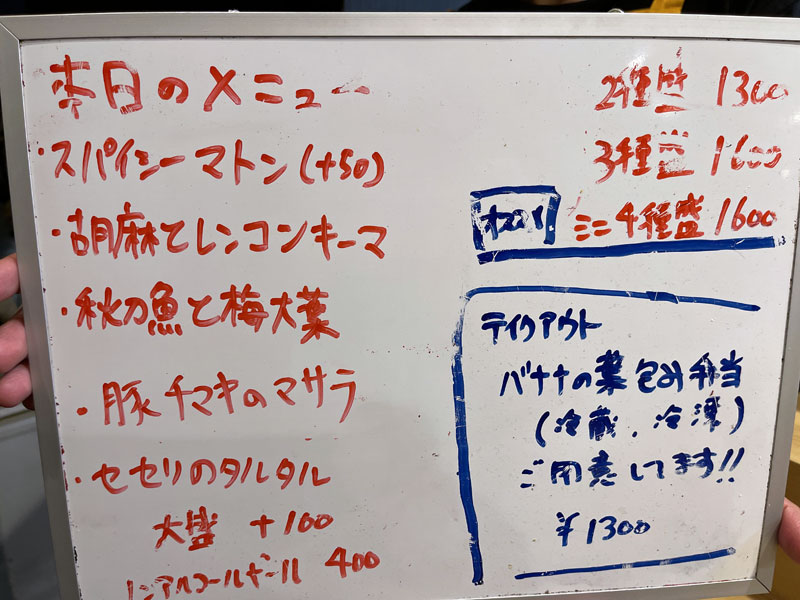 本日のメニュー
・スパイシーマトン(+50)
・胡麻とレンコンキーマ
・秋刀魚と梅大葉
・豚チマキのマサラ
・セセリのタルタル
大盛 +100
ノンアルコールビール 400
2種盛 1300
3種盛 1600
オススメ ミニ4種盛 1600
テイクアウト
バナナの葉包み弁当
(冷蔵、冷凍)
ご用意してます!!
¥1300